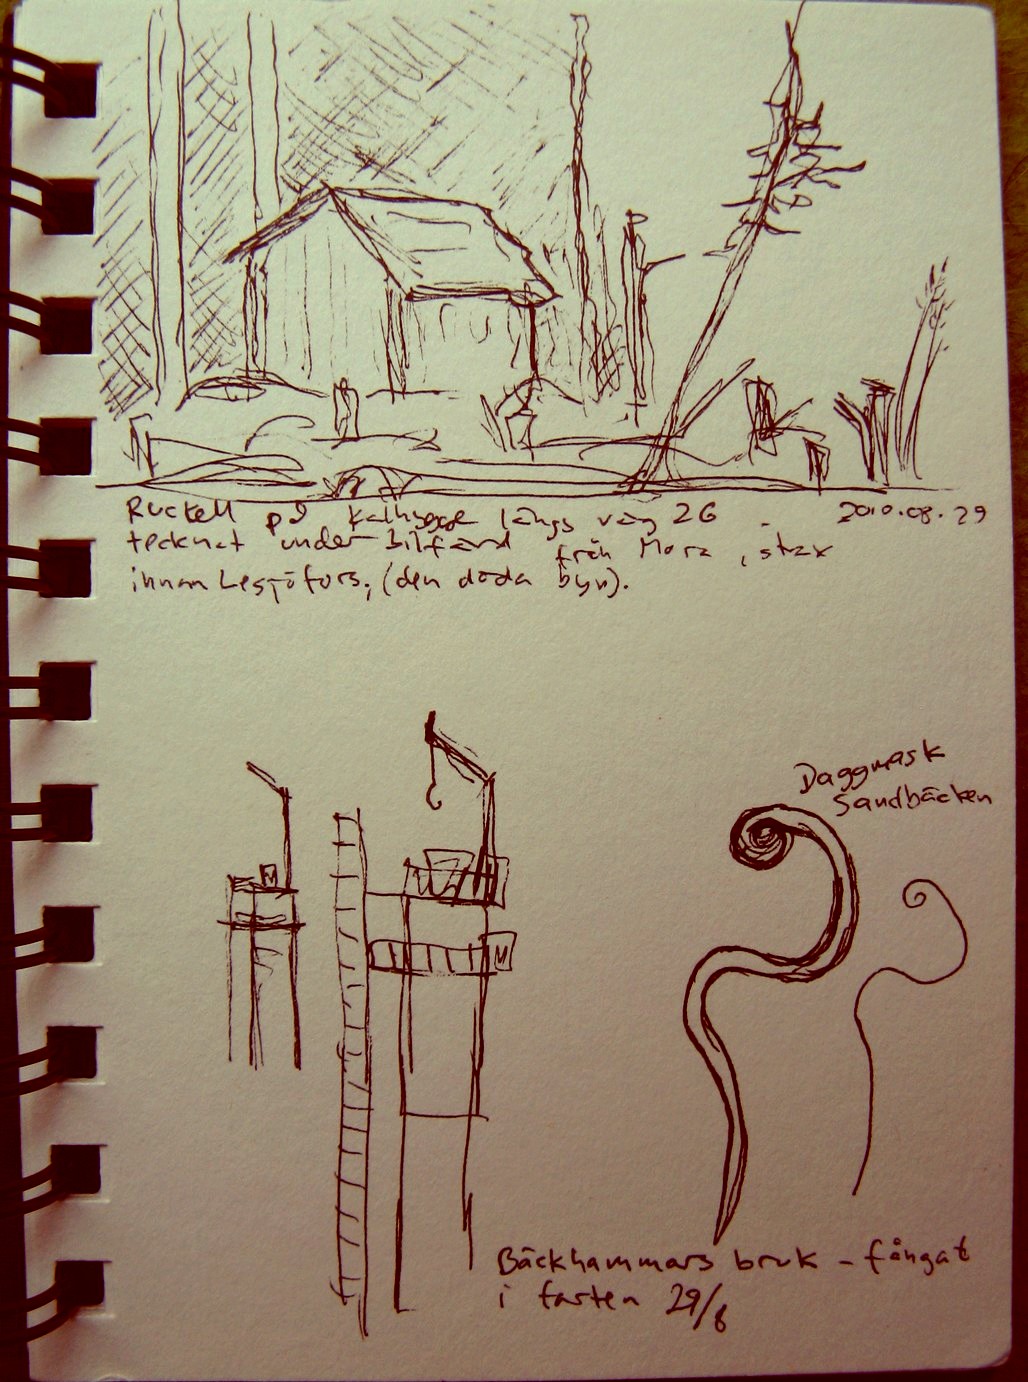 Ruckell på kalhygge längs väg 26 - 2010.08.29
tecknat under bilfärd från Mora, strax
innan Lesjöfors, (den döda byn).
M
M
Daggmask
Sandbäcken
Bäckhammars bruk - fångat
i farten 29/8